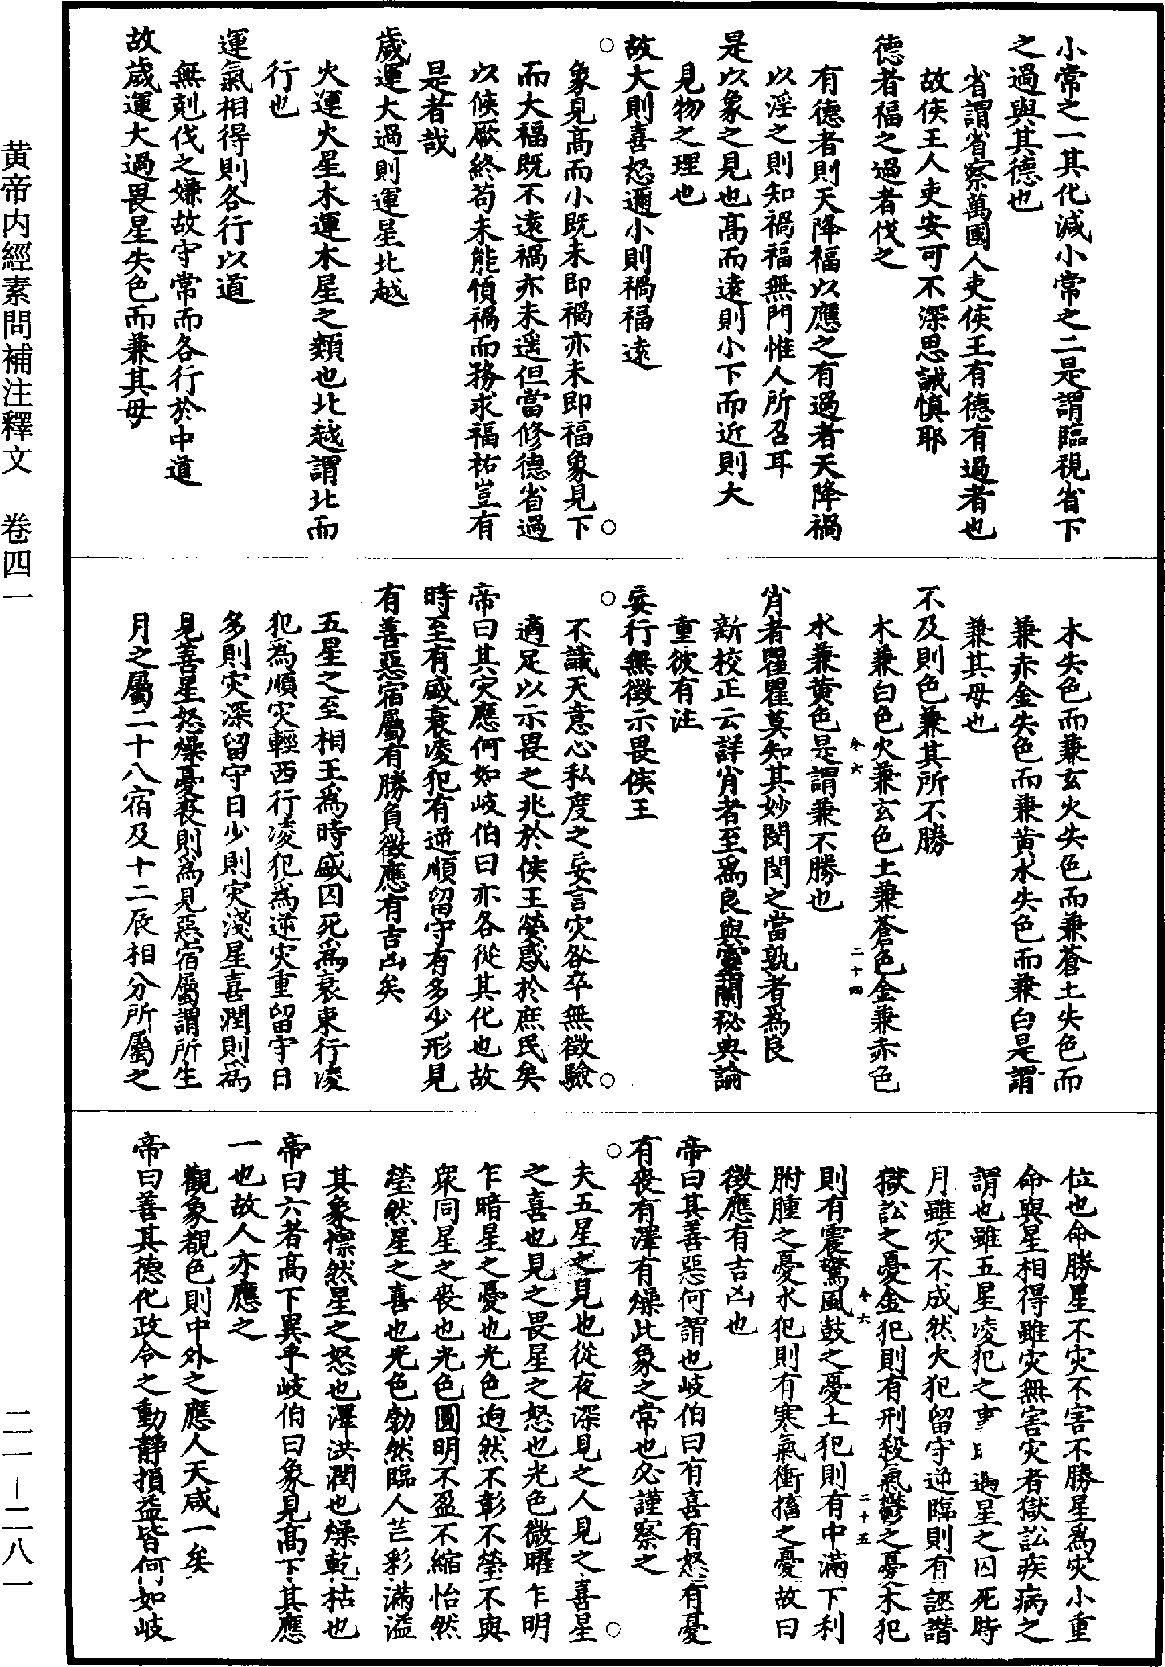 小常之一其化減小常之二是謂臨視省下
之過與其德也
省謂省察萬國人吏侯王有德有過者也
故侯王人吏安可不深思誡慎耶
德者福之過者伐之
有德者則天降福以應之有過者天降禍
以淫之則知禍福無門惟人所召耳
是以象之見也高而遠則小下而近則大
見物之理也
故大則喜怒邇小則禍福遠
象見高而小既未即禍亦未即福象見下
而大福既不遠禍亦未遥但當修德省過
以候厥終苟未能慎禍而務求福祐豈有
是者哉
歲運大過則運星北越
火運火星木運木星之類也北越謂北而
行也
運氣相得則各行以道
無剋伐之嫌故守常而各行於中道
故歲運大過畏星失色而兼其母
木失色而兼玄火失色而兼蒼土失色而
兼赤金失色而兼黄水失色而兼白是謂
兼其母也
不及則色兼其所不勝
木兼白色火兼玄色土兼蒼色金兼赤色
水兼黄色是謂兼不勝也
肖者瞿瞿莫知其妙閔閔之當孰者爲良
新校正云詳肖者至爲良與靈蘭秘典論
重彼有注
妄行無徵示畏侯王
不識天意心私度之妄言灾咎卒無徵驗
適足以示畏之兆於侯王熒惑於庶民矣
帝曰其灾應何如岐伯曰亦各從其化也故
時至有盛衰凌犯有逆順留守有多少形見
有善惡宿屬有勝負徵應有吉凶矣
五星之至相王爲時盛囚死爲衰東行凌
犯爲順灾輕西行凌犯爲逆灾重留守日
多則灾深留守日少則灾淺星喜潤則爲
見善星怒燥憂喪則爲見惡宿屬謂所生
月之屬二十八宿及十二辰相分所屬之
位也命勝星不灾不害不勝星爲灾小重
命與星相得雖灾無害灾者獄訟疾病之
謂也雖五星凌犯之事時遇星之囚死時
月雖灾不成然火犯留守逆臨則有誣譖
獄訟之憂金犯則有刑殺氣鬱之憂木犯
則有震驚風鼓之憂土犯則有中滿下利
胕腫之憂水犯則有寒氣衝擿之憂故曰
徵應有吉凶也
帝曰其善惡何謂也岐伯曰有喜有怒有憂
有喪有澤有燥此象之常也必謹察之
夫五星之見也從夜深見之人見之喜星
之喜也見之畏星之怒也光色微曜乍明
乍暗星之憂也光色迥然不彰不瑩不與
衆同星之喪也光色圓明不盈不縮怡然
瑩然星之喜也光色勃然臨人芒彩滿溢
其象懔然星之怒也澤洪潤也燥乾枯也
帝曰六者高下異乎岐伯曰象見高下其應
一也故人亦應之
觀象覩色則中外之應人天咸一矣
帝曰善其德化政令之動靜損益皆何如岐
黄帝内經素問補注釋文　卷四一
二一－二八一